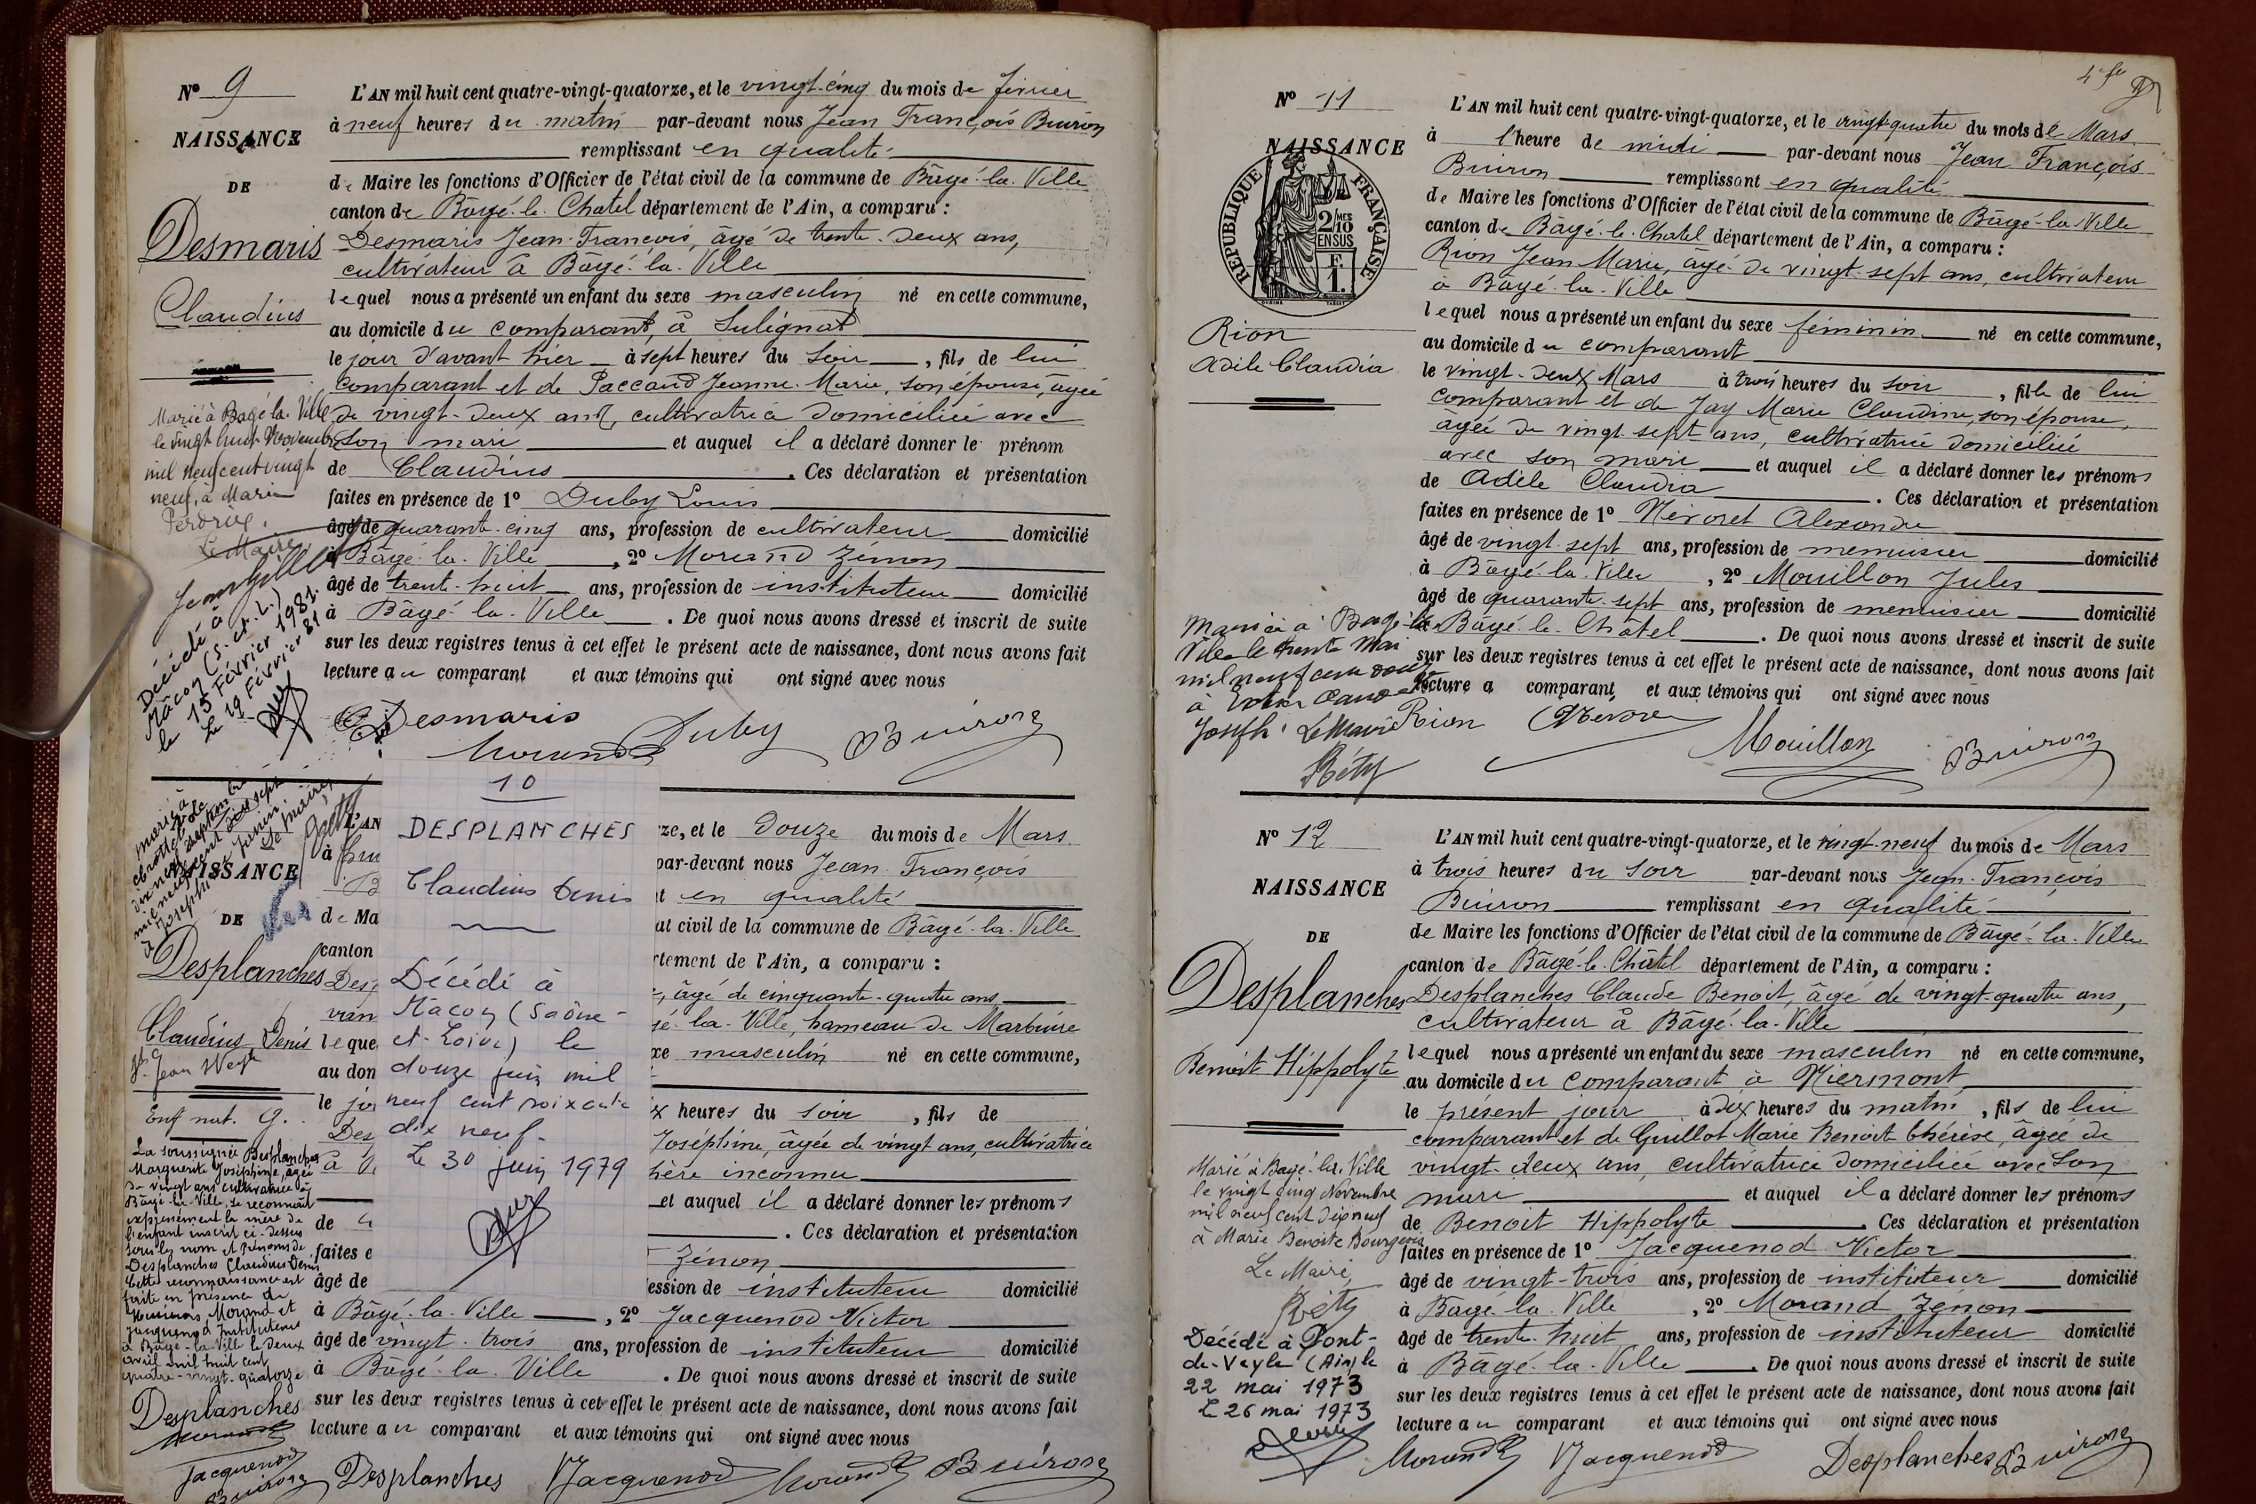 N° 9
NAISSANCE
DE
Desmaris
Claudius
Marié à Bagé-la-Ville
le vingt huit Novembre
mil neuf cent vingt
neuf, à Marie
Perdrix.
Le Maire
Décédé à
Mâcon (S.-et-L.)
le 15 Février 1981.
Le 19 Février 81
L'AN mil huit cent quatre-vingt-quatorze, et le vingt-cinq du mois de février
à neuf heures du matin par-devant nous Jean François Buiron
remplissant en qualité
de Maire les fonctions d'Officier de l'état civil de la commune de Bâgé-la-Ville
canton de Bâgé-le-Chatel département de l'Ain, a comparu :
Desmaris Jean-François, âgé de trente-deux ans,
cultivateur à Bâgé-la-Ville
lequel nous a présenté un enfant du sexe masculin né en cette commune,
au domicile du comparant, à Sulignat
le jour d'avant hier à sept heures du soir, fils de lui
comparant et de Paccaud Jeanne-Marie, son épouse, âgée
de vingt-deux ans, cultivatrice domiciliée avec
son mari et auquel il a déclaré donner le prénom
de Claudius. Ces déclaration et présentation
faites en présence de 1° Duby Louis
âgé de quarante-cinq ans, profession de cultivateur domicilié
à Bâgé-la-Ville, 2° Morand Zénon
âgé de trente-huit ans, profession de instituteur domicilié
à Bâgé-la-Ville. De quoi nous avons dressé et inscrit de suite
sur les deux registres tenus à cet effet le présent acte de naissance, dont nous avons fait
lecture au comparant et aux témoins qui ont signé avec nous
Desmaris
Morand Duby Buiron
Marié à
dix neuf septembre
mil neuf cent dix sept
NAISSANCE
DE
Desplanches
Claudius Denis
Enf nat. G.
La soussignée Desplanches
Marguerite Joséphine, âgée
de vingt ans cultivatrice à
Bâgé-la-Ville, se reconnait
expressément la mère de
l'enfant inscrit ci-dessus
sous les nom et prénoms de
Desplanches Claudius Denis
Cette reconnaissance est
faite en présence de
Messieurs Morand et
Jacquenod Instituteurs
à Bâgé-la-Ville le deux
avril mil huit cent
quatre-vingt-quatorze
Desplanches
Morand
Jacquenod
Buiron
10
DESPLANCHES
Claudius Denis
Décédé à
Mâcon (Saône-
et-Loire) le
douze juin mil
neuf cent soixante
dix neuf.
Le 30 juin 1979
L'AN
ze, et le douze du mois de Mars
par-devant nous Jean François
en qualité
de Ma
at civil de la commune de Bâgé-la-Ville
canton
rtement de l'Ain, a comparu :
Des
, âgé de cinquante-quatre ans,
gé-la-Ville, hameau de Marbuire
leque
xe masculin né en cette commune,
au dom
le jou
x heures du soir, fils de
Des
Joséphine, âgée de vingt ans, cultivatrice
père inconnu
et auquel il a déclaré donner les prénoms
de
. Ces déclaration et présentation
faites e
Zénon
âgé de
ession de instituteur domicilié
à Bâgé-la-Ville, 2° Jacquenod Victor
âgé de vingt-trois ans, profession de instituteur domicilié
à Bâgé-la-Ville. De quoi nous avons dressé et inscrit de suite
sur les deux registres tenus à cet effet le présent acte de naissance, dont nous avons fait
lecture au comparant et aux témoins qui ont signé avec nous
Desplanches Jacquenod Morand Buiron
N° 11
NAISSANCE
RÉPUBLIQUE FRANÇAISE
2/10 MES
EN SUS
F.
1.
Rion
Adèle Claudia
Mariée à Bagé-la-
Ville le trente Mai
mil neuf cent douze
à
Joseph. Le Maire
Réty
L'AN mil huit cent quatre-vingt-quatorze, et le vingt-quatre du mois de Mars
à l'heure de midi par-devant nous Jean François
Buiron remplissant en qualité
de Maire les fonctions d'Officier de l'état civil de la commune de Bâgé-la-Ville
canton de Bâgé-le-Chatel département de l'Ain, a comparu :
Rion Jean Marie, âgé de vingt-sept ans, cultivateur
à Bâgé-la-Ville
lequel nous a présenté un enfant du sexe féminin né en cette commune,
au domicile du comparant
le vingt-deux Mars à trois heures du soir, fille de lui
comparant et de Jay Marie Claudine, son épouse,
âgée de vingt-sept ans, cultivatrice domiciliée
avec son mari et auquel il a déclaré donner les prénoms
de Adèle Claudia. Ces déclaration et présentation
faites en présence de 1° Névoret Alexandre
âgé de vingt-sept ans, profession de menuisier domicilié
à Bâgé-la-Ville, 2° Mouillon Jules
âgé de quarante-sept ans, profession de menuisier domicilié
à Bâgé-le-Châtel. De quoi nous avons dressé et inscrit de suite
sur les deux registres tenus à cet effet le présent acte de naissance, dont nous avons fait
lecture a comparant et aux témoins qui ont signé avec nous
Rion
Mouillon Buiron
N° 12
NAISSANCE
DE
Desplanches
Benoit Hippolyte
Marié à Bagé-la-Ville
le vingt cinq Novembre
mil neuf cent dix neuf
à Marie Benoite Bourgeois
Le Maire,
Réty
Décédé à Pont-
de-Veyle (Ain) le
22 mai 1973
Le 26 mai 1973
L'AN mil huit cent quatre-vingt-quatorze, et le vingt-neuf du mois de Mars
à trois heures du soir par-devant nous Jean-François
Buiron remplissant en qualité
de Maire les fonctions d'Officier de l'état civil de la commune de Bâgé-la-Ville
canton de Bâgé-le-Châtel département de l'Ain, a comparu :
Desplanches Claude Benoit, âgé de vingt-quatre ans,
cultivateur à Bâgé-la-Ville
lequel nous a présenté un enfant du sexe masculin né en cette commune,
au domicile du comparant à Niermont
le présent jour à dix heures du matin, fils de lui
comparant et de Guillot Marie Benoit Thérèse, âgée de
vingt-deux ans, cultivatrice domiciliée avec son
mari et auquel il a déclaré donner les prénoms
de Benoit Hippolyte. Ces déclaration et présentation
faites en présence de 1° Jacquenod Victor
âgé de vingt-trois ans, profession de instituteur domicilié
à Bâgé-la-Ville, 2° Morand Zénon
âgé de trente-huit ans, profession de instituteur domicilié
à Bâgé-la-Ville. De quoi nous avons dressé et inscrit de suite
sur les deux registres tenus à cet effet le présent acte de naissance, dont nous avons fait
lecture au comparant et aux témoins qui ont signé avec nous
Morand Jacquenod Desplanches Buiron